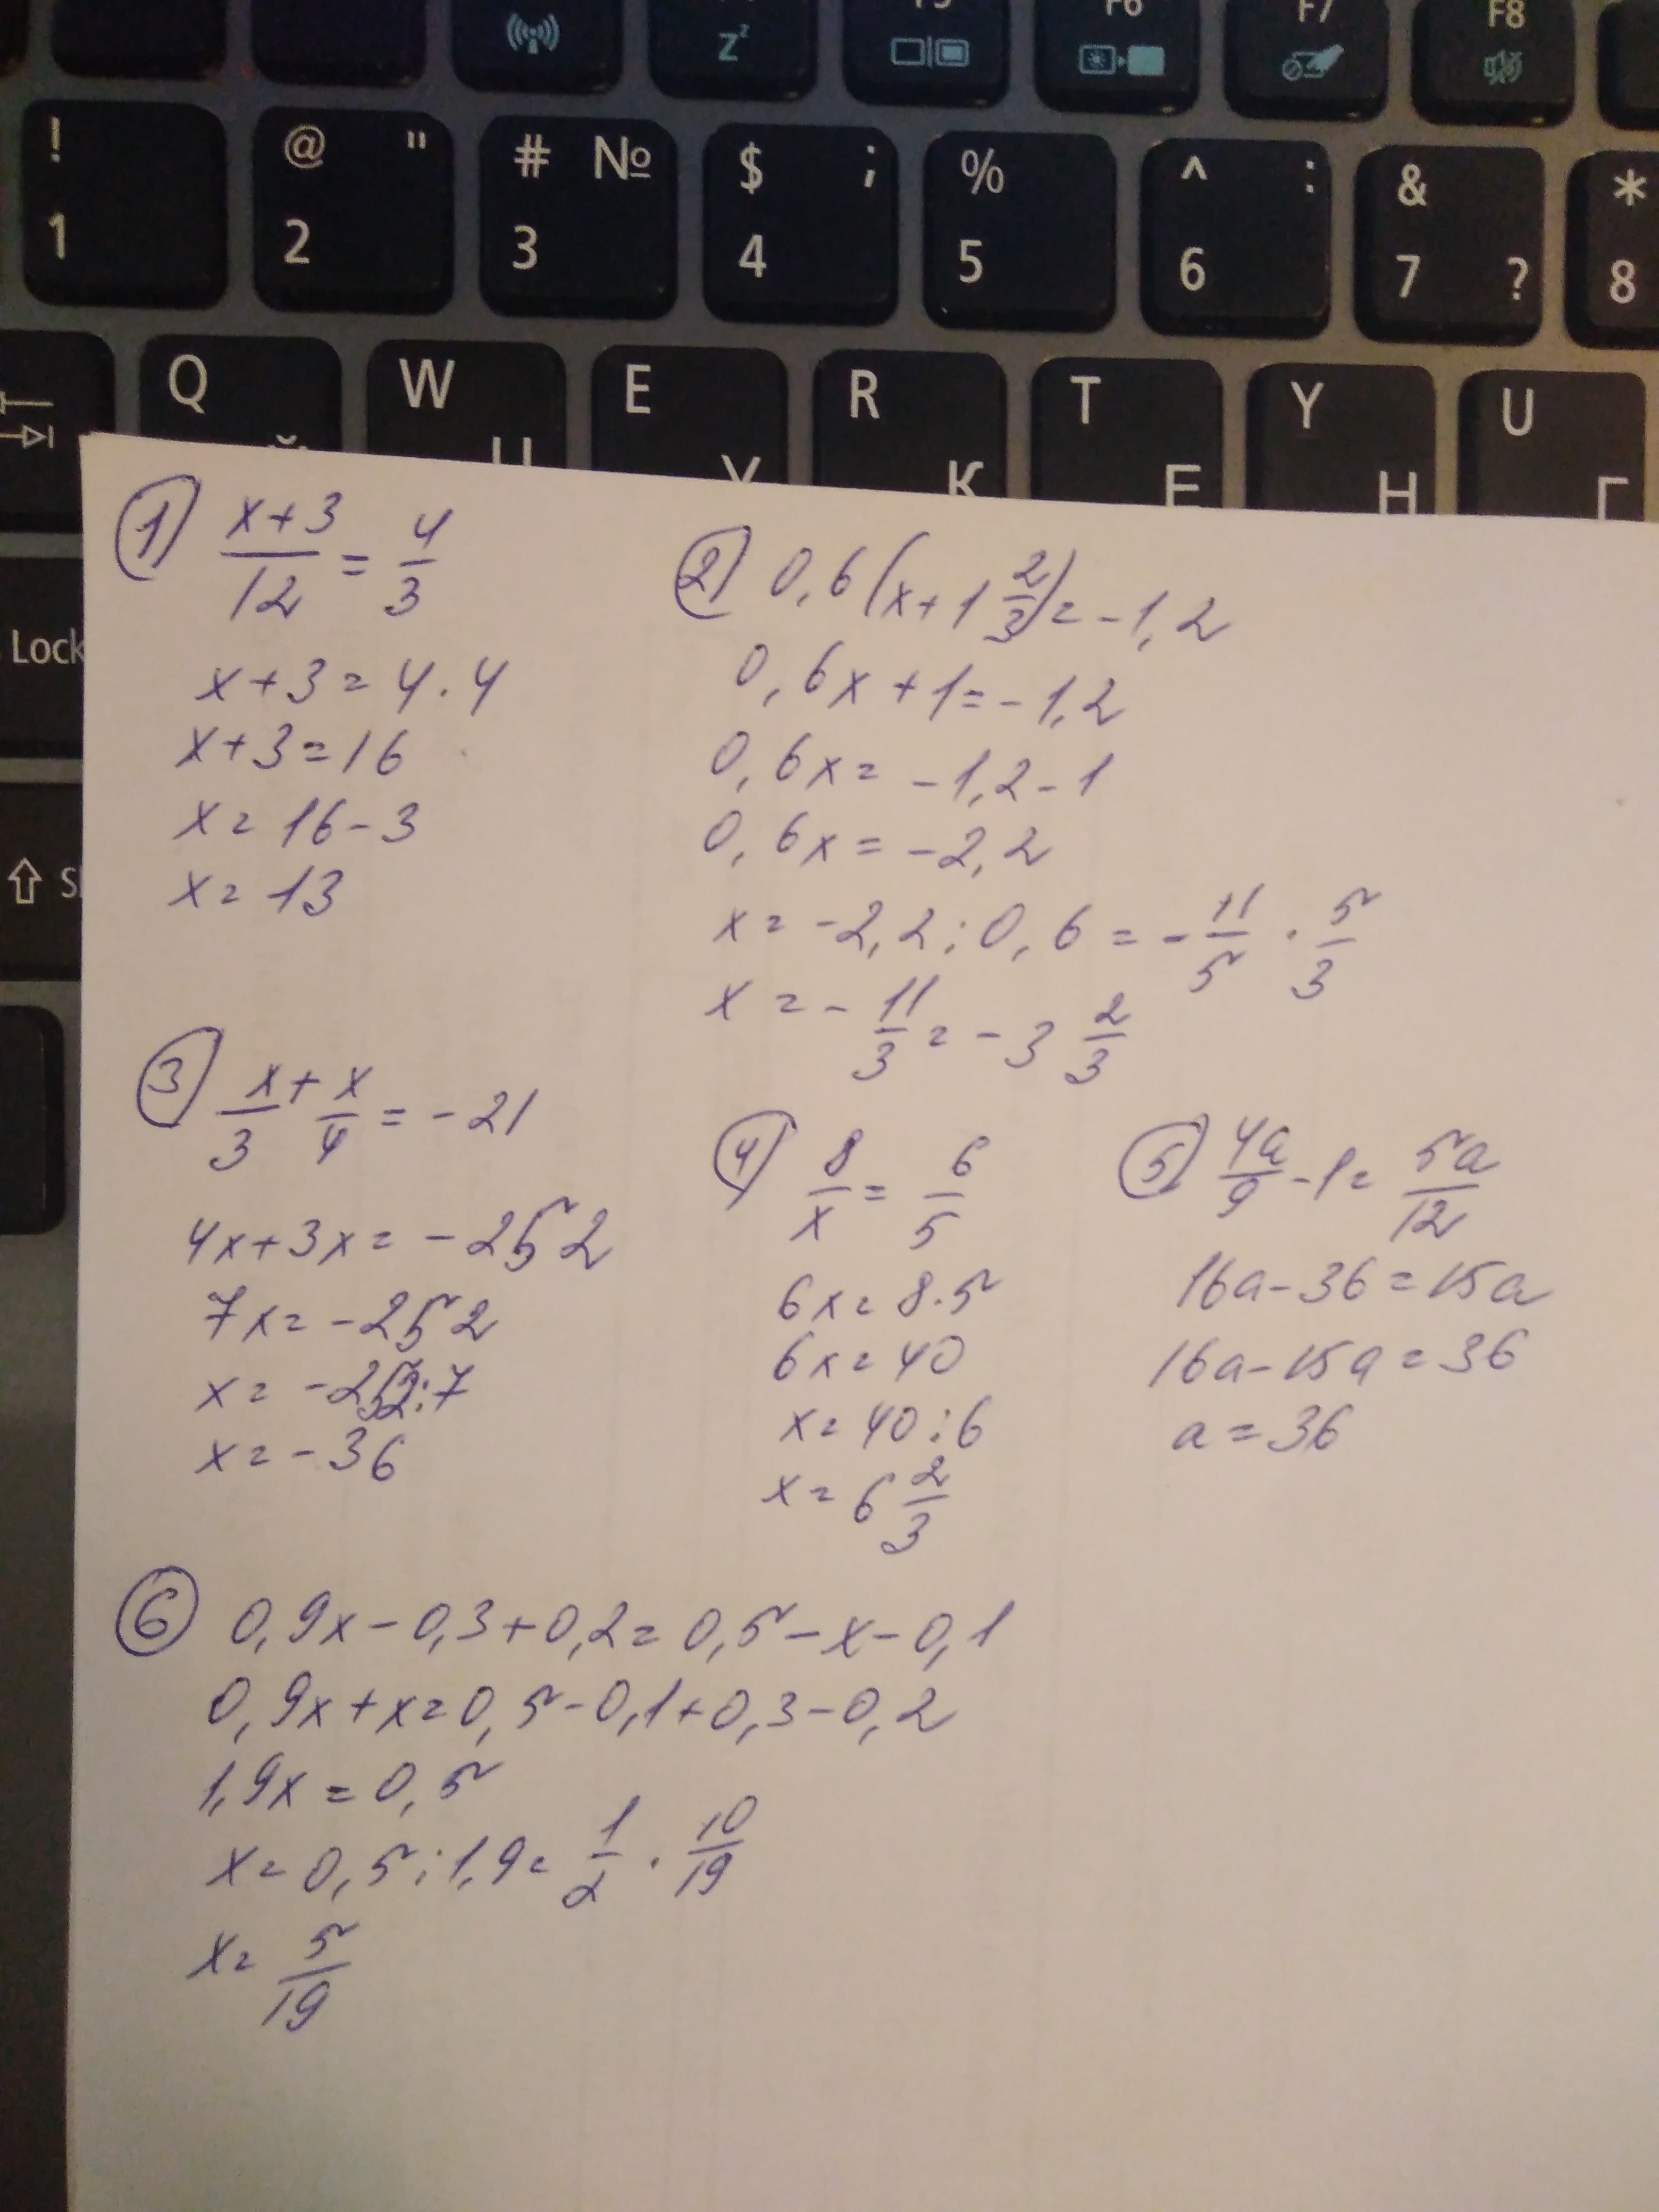 F6 F7 F8
Z^z
! @ " # № $ ; % ^ : & *
1 2 3 4 5 6 7 ? 8
Q W E R T Y U
К Е Н Г
Lock
1) \frac{x+3}{12} = \frac{4}{3}
x+3=4·4
x+3=16
x=16-3
x=13
2) 0,6(x+1\frac{2}{3})=-1,2
0,6x+1=-1,2
0,6x=-1,2-1
0,6x=-2,2
x=-2,2:0,6=-\frac{11}{5}·\frac{5}{3}
x=-\frac{11}{3}=-3\frac{2}{3}
3) \frac{x}{3}+\frac{x}{4}=-21
4x+3x=-252
7x=-252
x=-252:7
x=-36
4) \frac{8}{x}=\frac{6}{5}
6x=8·5
6x=40
x=40:6
x=6\frac{2}{3}
5) \frac{4a}{9}-1=\frac{5a}{12}
16a-36=15a
16a-15a=36
a=36
6) 0,9x-0,3+0,2=0,5-x-0,1
0,9x+x=0,5-0,1+0,3-0,2
1,9x=0,5
x=0,5:1,9=\frac{1}{2}·\frac{10}{19}
x=\frac{5}{19}